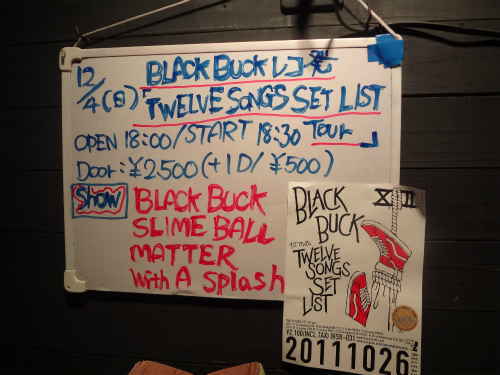 12/4(日) BLACK BUCK レコ発
「TWELVE SONGS SET LIST
Tour」
OPEN 18:00/START 18:30
Door:¥2,500(+1D/¥500)
Show
BLACK BUCK
SLIME BALL
MATTER
With A Splash
BLACK
BUCK
XII
TWELVE
SONGS
SET
LIST
¥2,100(INCL.TAX)
20111026
RELEASE